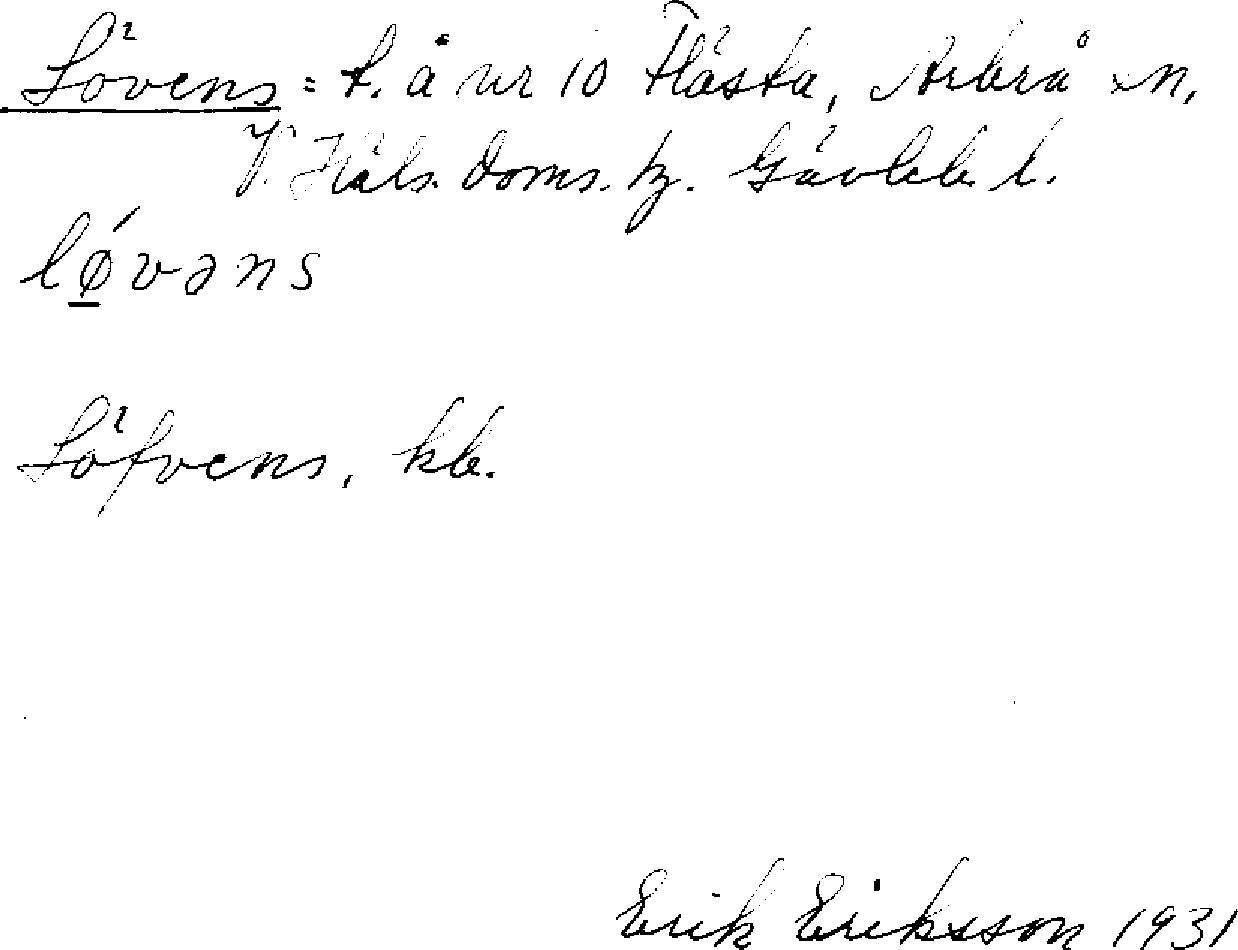 Lövens = f. å nr 10 Flästa, Arbrå sn,
V. Häls. Doms. hg. Gävleb. l.
lǿvəns
Löfvens, kb.
Erik Eriksson 1931